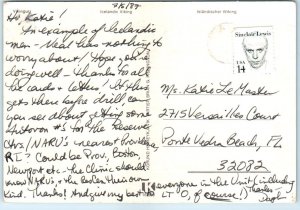 Vikingur
Icelandic Viking
7/5/87
Hi, Katie!
An example of Icelandic
men - Neal has nothing to
worry about! Hope you're
doing well - Thanks to all
the cards & letters! If this
gets there before drill, can
you see about getting some
for the Reserve
Ctrs/NHRU's nearest Providence,
RI? Could be Prov., Boston,
Newport etc - the Clinic should
know NHRU's, & the ResCen their own
kind. Thanks! And give my best to
everyone in the Unit (including
LT O, of course!) Thanks
Sinclair Lewis
USA
14
M/s. Katie LeMaster
2715 Versailles Court
Ponte Vedra Beach, FL
32082